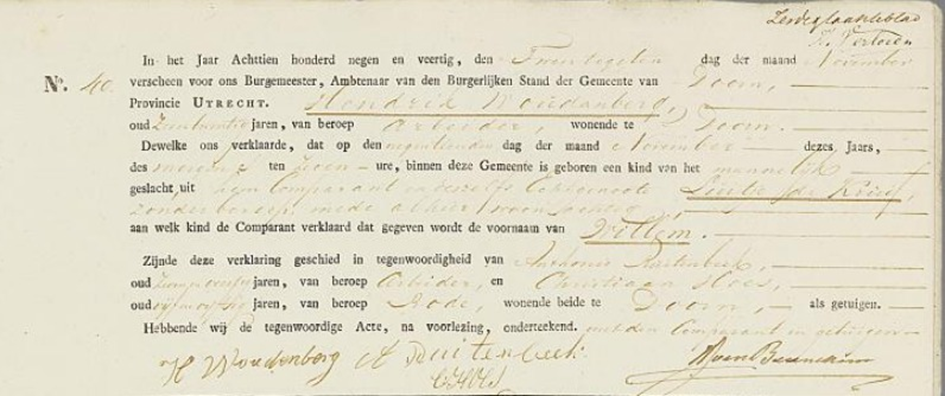 In het Jaar Achttien honderd negen en veertig, den Twintigsten dag der maand November
N°. 40. verscheen voor ons Burgemeester, Ambtenaar van den Burgerlijken Stand der Gemeente van Doorn,
Provincie UTRECHT. Hendrik Woudenberg,
oud jaren, van beroep Arbeider, wonende te Doorn.
Dewelke ons verklaarde, dat op den negentienden dag der maand November dezes Jaars,
des morgens ten zeven ure, binnen deze Gemeente is geboren een kind van het mannelijk
geslacht uit hem Comparant en deszelfs Echtgenoote
zonder beroep, mede alhier woonachtig,
aan welk kind de Comparant verklaard dat gegeven wordt de voornaam van Willem.
Zijnde deze verklaring geschied in tegenwoordigheid van Anthonie
oud jaren, van beroep Arbeider, en Christiaan
oud jaren, van beroep Bode, wonende beide te Doorn, als getuigen.
Hebbende wij de tegenwoordige Acte, na voorlezing, onderteekend. met den Comparant en getuigen
H Woudenberg A Ruitenbeek